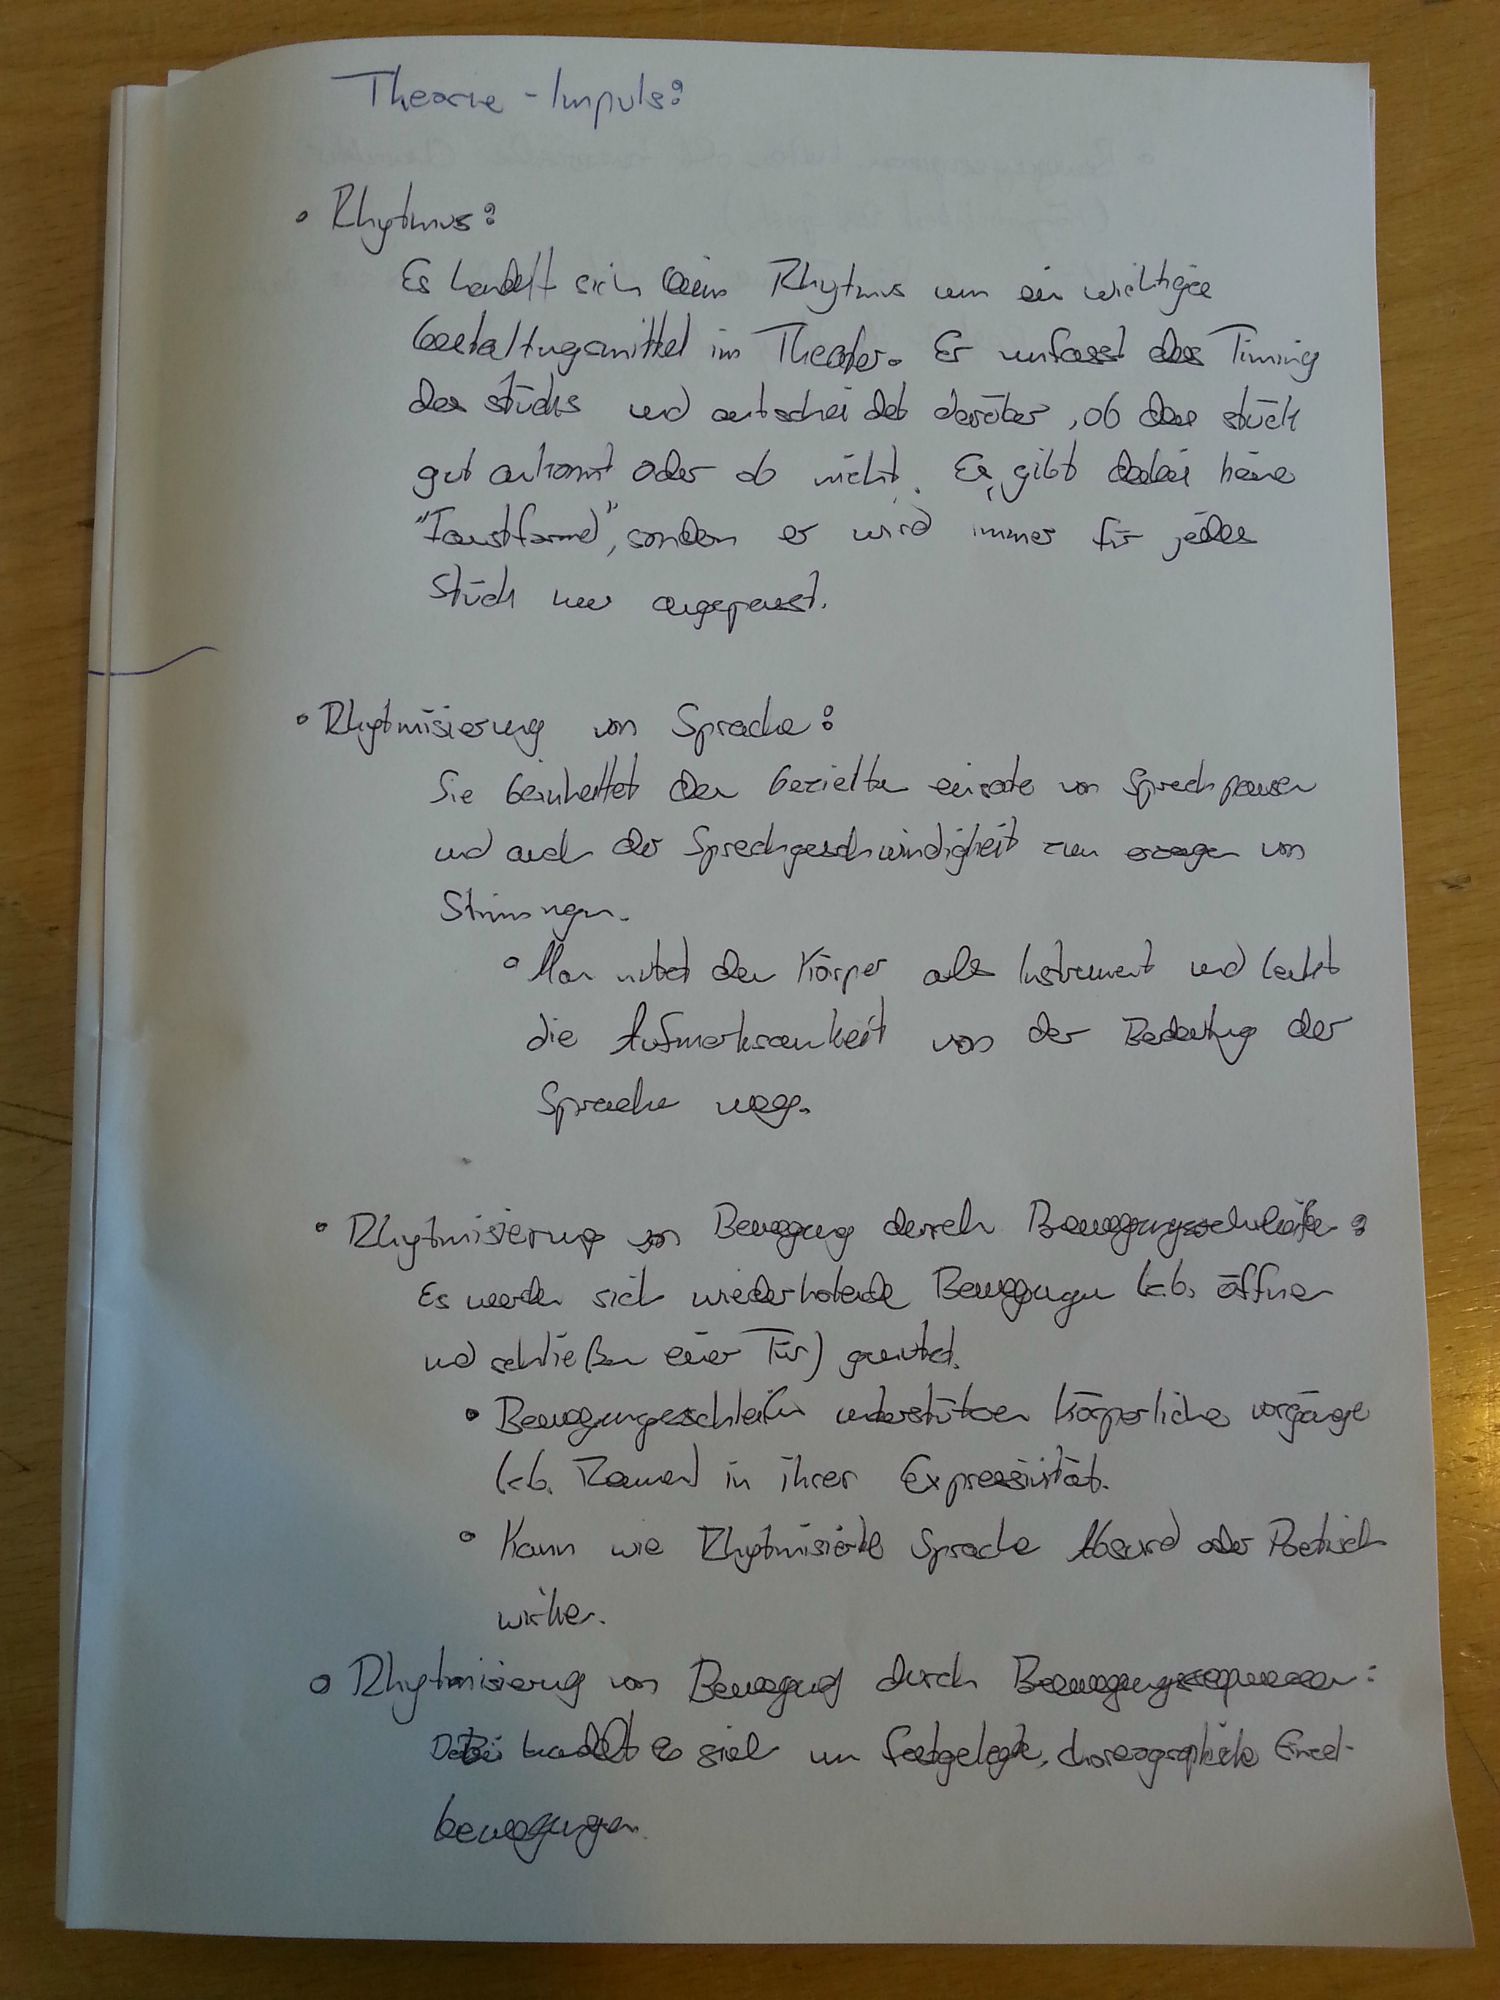 Theorie - Impuls:
• Rhytmus:
Es handelt sich beim Rhytmus um ein wichtiges
Gestaltungsmittel im Theater. Er umfasst das Timing
des stücks und entscheidet darüber, ob das stück
gut ankommt oder ob nicht. Es gibt dabei keine
"Faustformel", sondern er wird immer für jedes
Stück neu angepasst.
• Rhytmisierung von Sprache:
Sie beinhaltet den Gezielten einsatz von Sprechpausen
und auch der Sprechgeschwindigkeit zum erzeugen von
Stimmungen.
• Man nutzt den Körper als Instrument und lenkt
die Aufmerksamkeit von der Bedeutung der
Sprache weg.
• Rhytmisierung von Bewegung durch Bewegungsschleifen:
Es werden sich wiederholende Bewegungen (z.b. öffnen
und schließen einer Tür) genutzt.
• Bewegungsschleifen unterstützen körperliche vorgänge
(z.b. in ihrer Expressivität.
• Kann wie Rhytmisierte Sprache Absurd oder Poetisch
wirken.
• Rhytmisierung von Bewegung durch Bewegungssequenzen:
Dabei handelt es sich um festgelegte, choreographierte Einzel-
bewegungen.